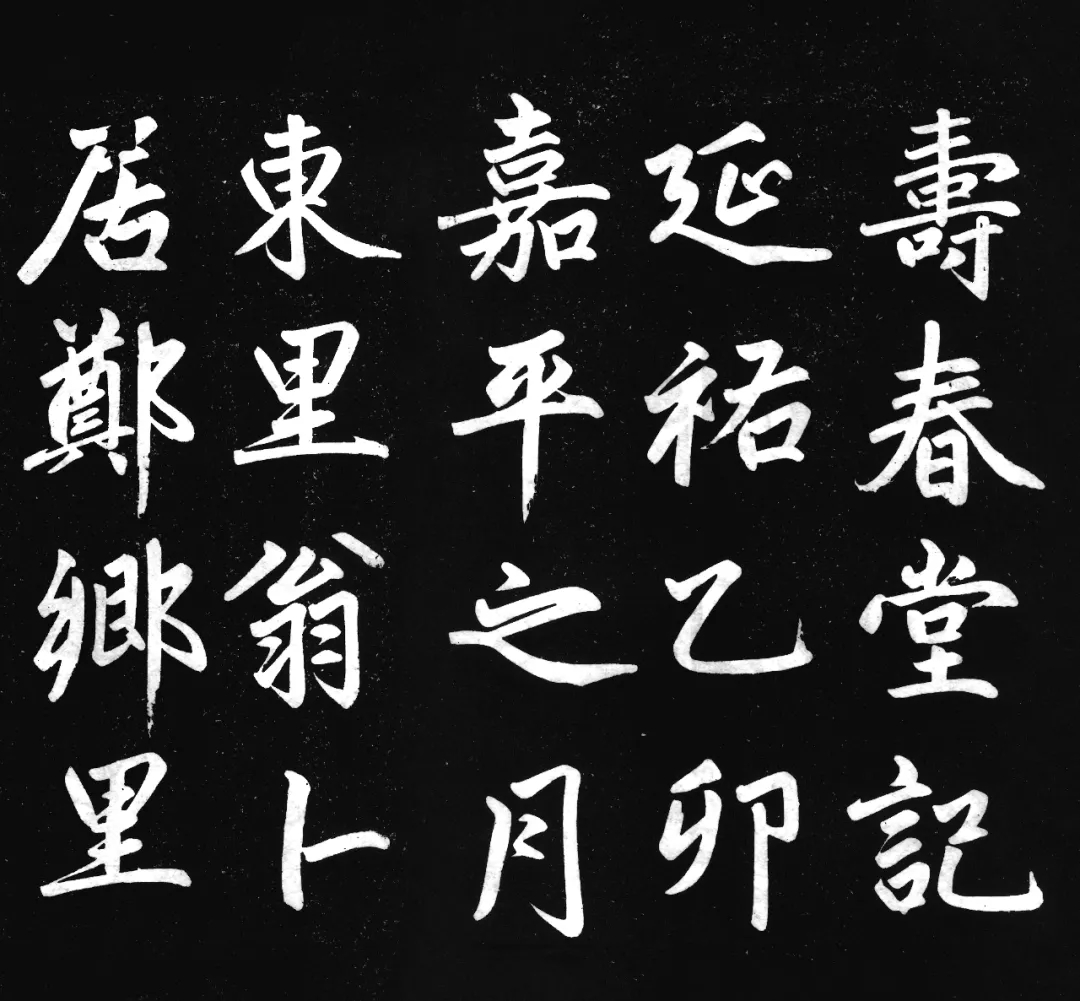 壽春堂記
延祐乙卯
嘉平之月
東里翁卜
居鄭鄉里